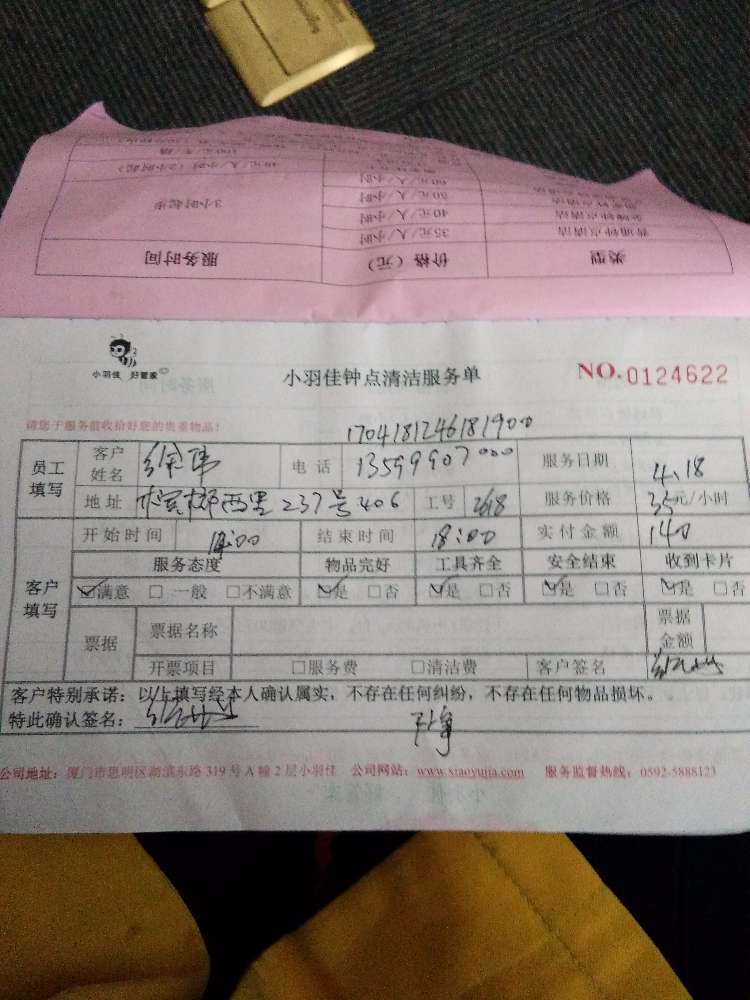 类型 价格（元） 服务时间
普通钟点清洁 35元/人/小时 3小时起步
金牌钟点清洁 40元/人/小时
50元/人/小时
60元/人/小时
小羽佳 好管家
小羽佳钟点清洁服务单
NO.0124622
请您于服务前收拾好您的贵重物品！
1704181246181900
员工填写
客户姓名 徐玮 电话 13599907000 服务日期 4.18
地址 槟榔西里237号406 工号 2618 服务价格 35元/小时
客户填写
开始时间 14:00 结束时间 18:00 实付金额 140
服务态度 物品完好 工具齐全 安全结束 收到卡片
☑满意 □一般 □不满意 ☑是 □否 ☑是 □否 ☑是 □否 ☑是 □否
票据 票据名称 票据金额
开票项目 □服务费 □清洁费 客户签名
客户特别承诺：以上填写经本人确认属实，不存在任何纠纷，不存在任何物品损坏。
特此确认签名：
公司地址：厦门市思明区湖滨东路319号A幢2层小羽佳 公司网站：www.xiaoyujia.com 服务监督热线：0592-5888123